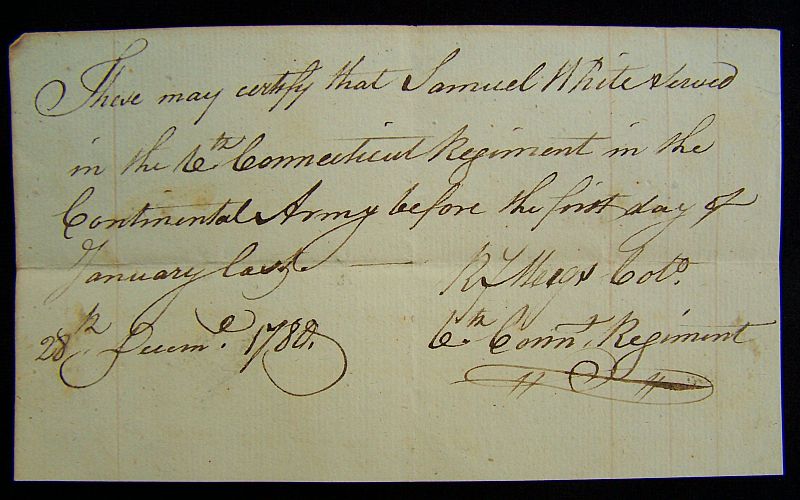 These may certify that Samuel White served
in the 6th Connecticut Regiment in the
Continental Army before the first day of
January last. —
R J Meigs Colo.
28th Decemr. 1780.
6th Connt. Regiment